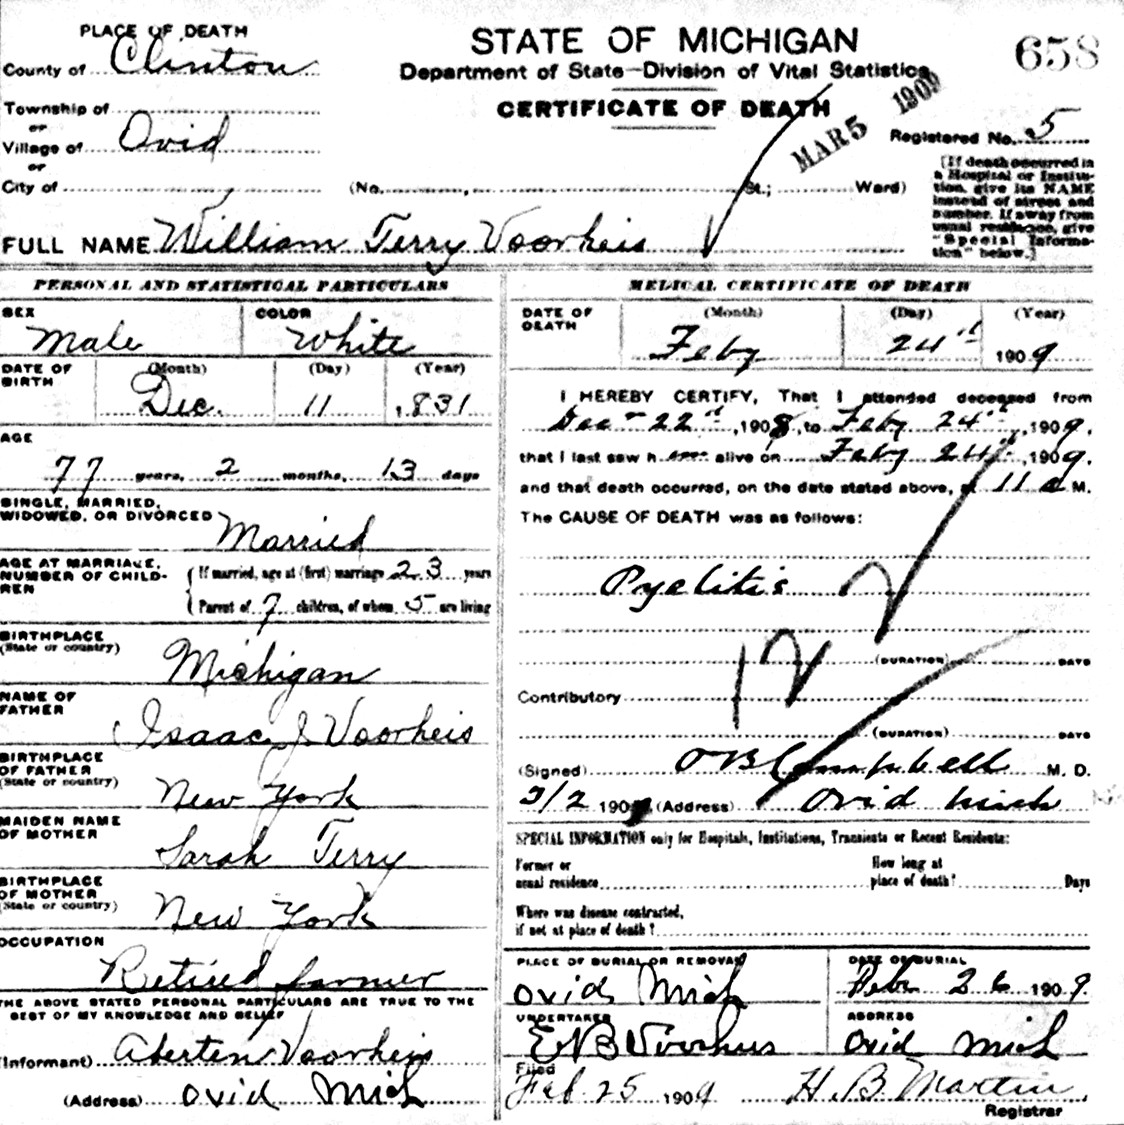 PLACE OF DEATH
County of Clinton
Township of
or
Village of Ovid
or
City of
STATE OF MICHIGAN
Department of State—Division of Vital Statistics
CERTIFICATE OF DEATH
658
MAR 5 1909
Registered No. 5
(No. , St.; Ward)
[If death occurred in
a Hospital or Institu-
tion, give its NAME
instead of street and
number. If away from
usual residence, give
"Special Informa-
tion" below.]
FULL NAME William Terry Voorheis
PERSONAL AND STATISTICAL PARTICULARS
SEX Male
COLOR White
DATE OF BIRTH
(Month) (Day) (Year)
Dec. 11 , 831
AGE
77 years, 2 months, 13 days
SINGLE, MARRIED,
WIDOWED, OR DIVORCED Married
AGE AT MARRIAGE,
NUMBER OF CHILD-
REN
If married, age at (first) marriage 23 years
Parent of 7 children, of whom 5 are living
BIRTHPLACE
(State or country)
Michigan
NAME OF
FATHER
Isaac J. Voorheis
BIRTHPLACE
OF FATHER
(State or country)
New York
MAIDEN NAME
OF MOTHER
Sarah Terry
BIRTHPLACE
OF MOTHER
(State or country)
New York
OCCUPATION
Retired farmer
THE ABOVE STATED PERSONAL PARTICULARS ARE TRUE TO THE
BEST OF MY KNOWLEDGE AND BELIEF
(Informant) Voorheis
(Address) Ovid Mich
MEDICAL CERTIFICATE OF DEATH
DATE OF
DEATH
(Month) (Day) (Year)
Feby 24th 1909
I HEREBY CERTIFY, That I attended deceased from
Dec 22nd, 1908, to Feby 24th, 1909,
that I last saw h alive on Feby 24th, 1909.
and that death occurred, on the date stated above, at 11 a M.
The CAUSE OF DEATH was as follows:
Pyelitis
12
(DURATION) DAYS
Contributory
(DURATION) DAYS
(Signed) O B Campbell M. D.
1909 (Address) Ovid Mich
SPECIAL INFORMATION only for Hospitals, Institutions, Transients or Recent Residents:
Former or
usual residence
How long at
place of death? Days
Where was disease contracted,
if not at place of death?
PLACE OF BURIAL OR REMOVAL
Ovid Mich
DATE OF BURIAL
Feb. 26 1909.
UNDERTAKER
E N B Voorheis
ADDRESS
Ovid Mich
Filed
Feb. 25 1909 H. B. Martin
Registrar